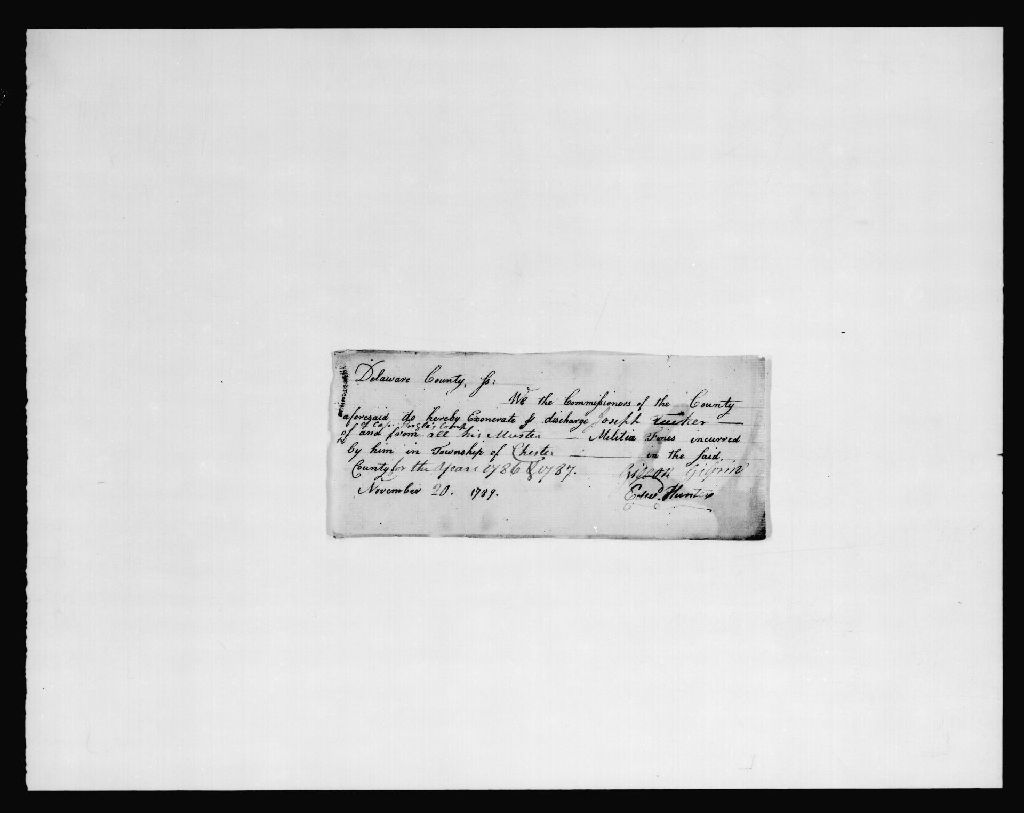 Delaware County, Ss:
We the Commissioners of the County
aforesaid do hereby Exonerate & discharge Joseph
of Capt. Comp
of and from all his Muster — Militia Fines incurred
by him in Township of Chester — in the said
County for the Years 1786 & 1787.
November 20. 1789. Edwd. Hunt